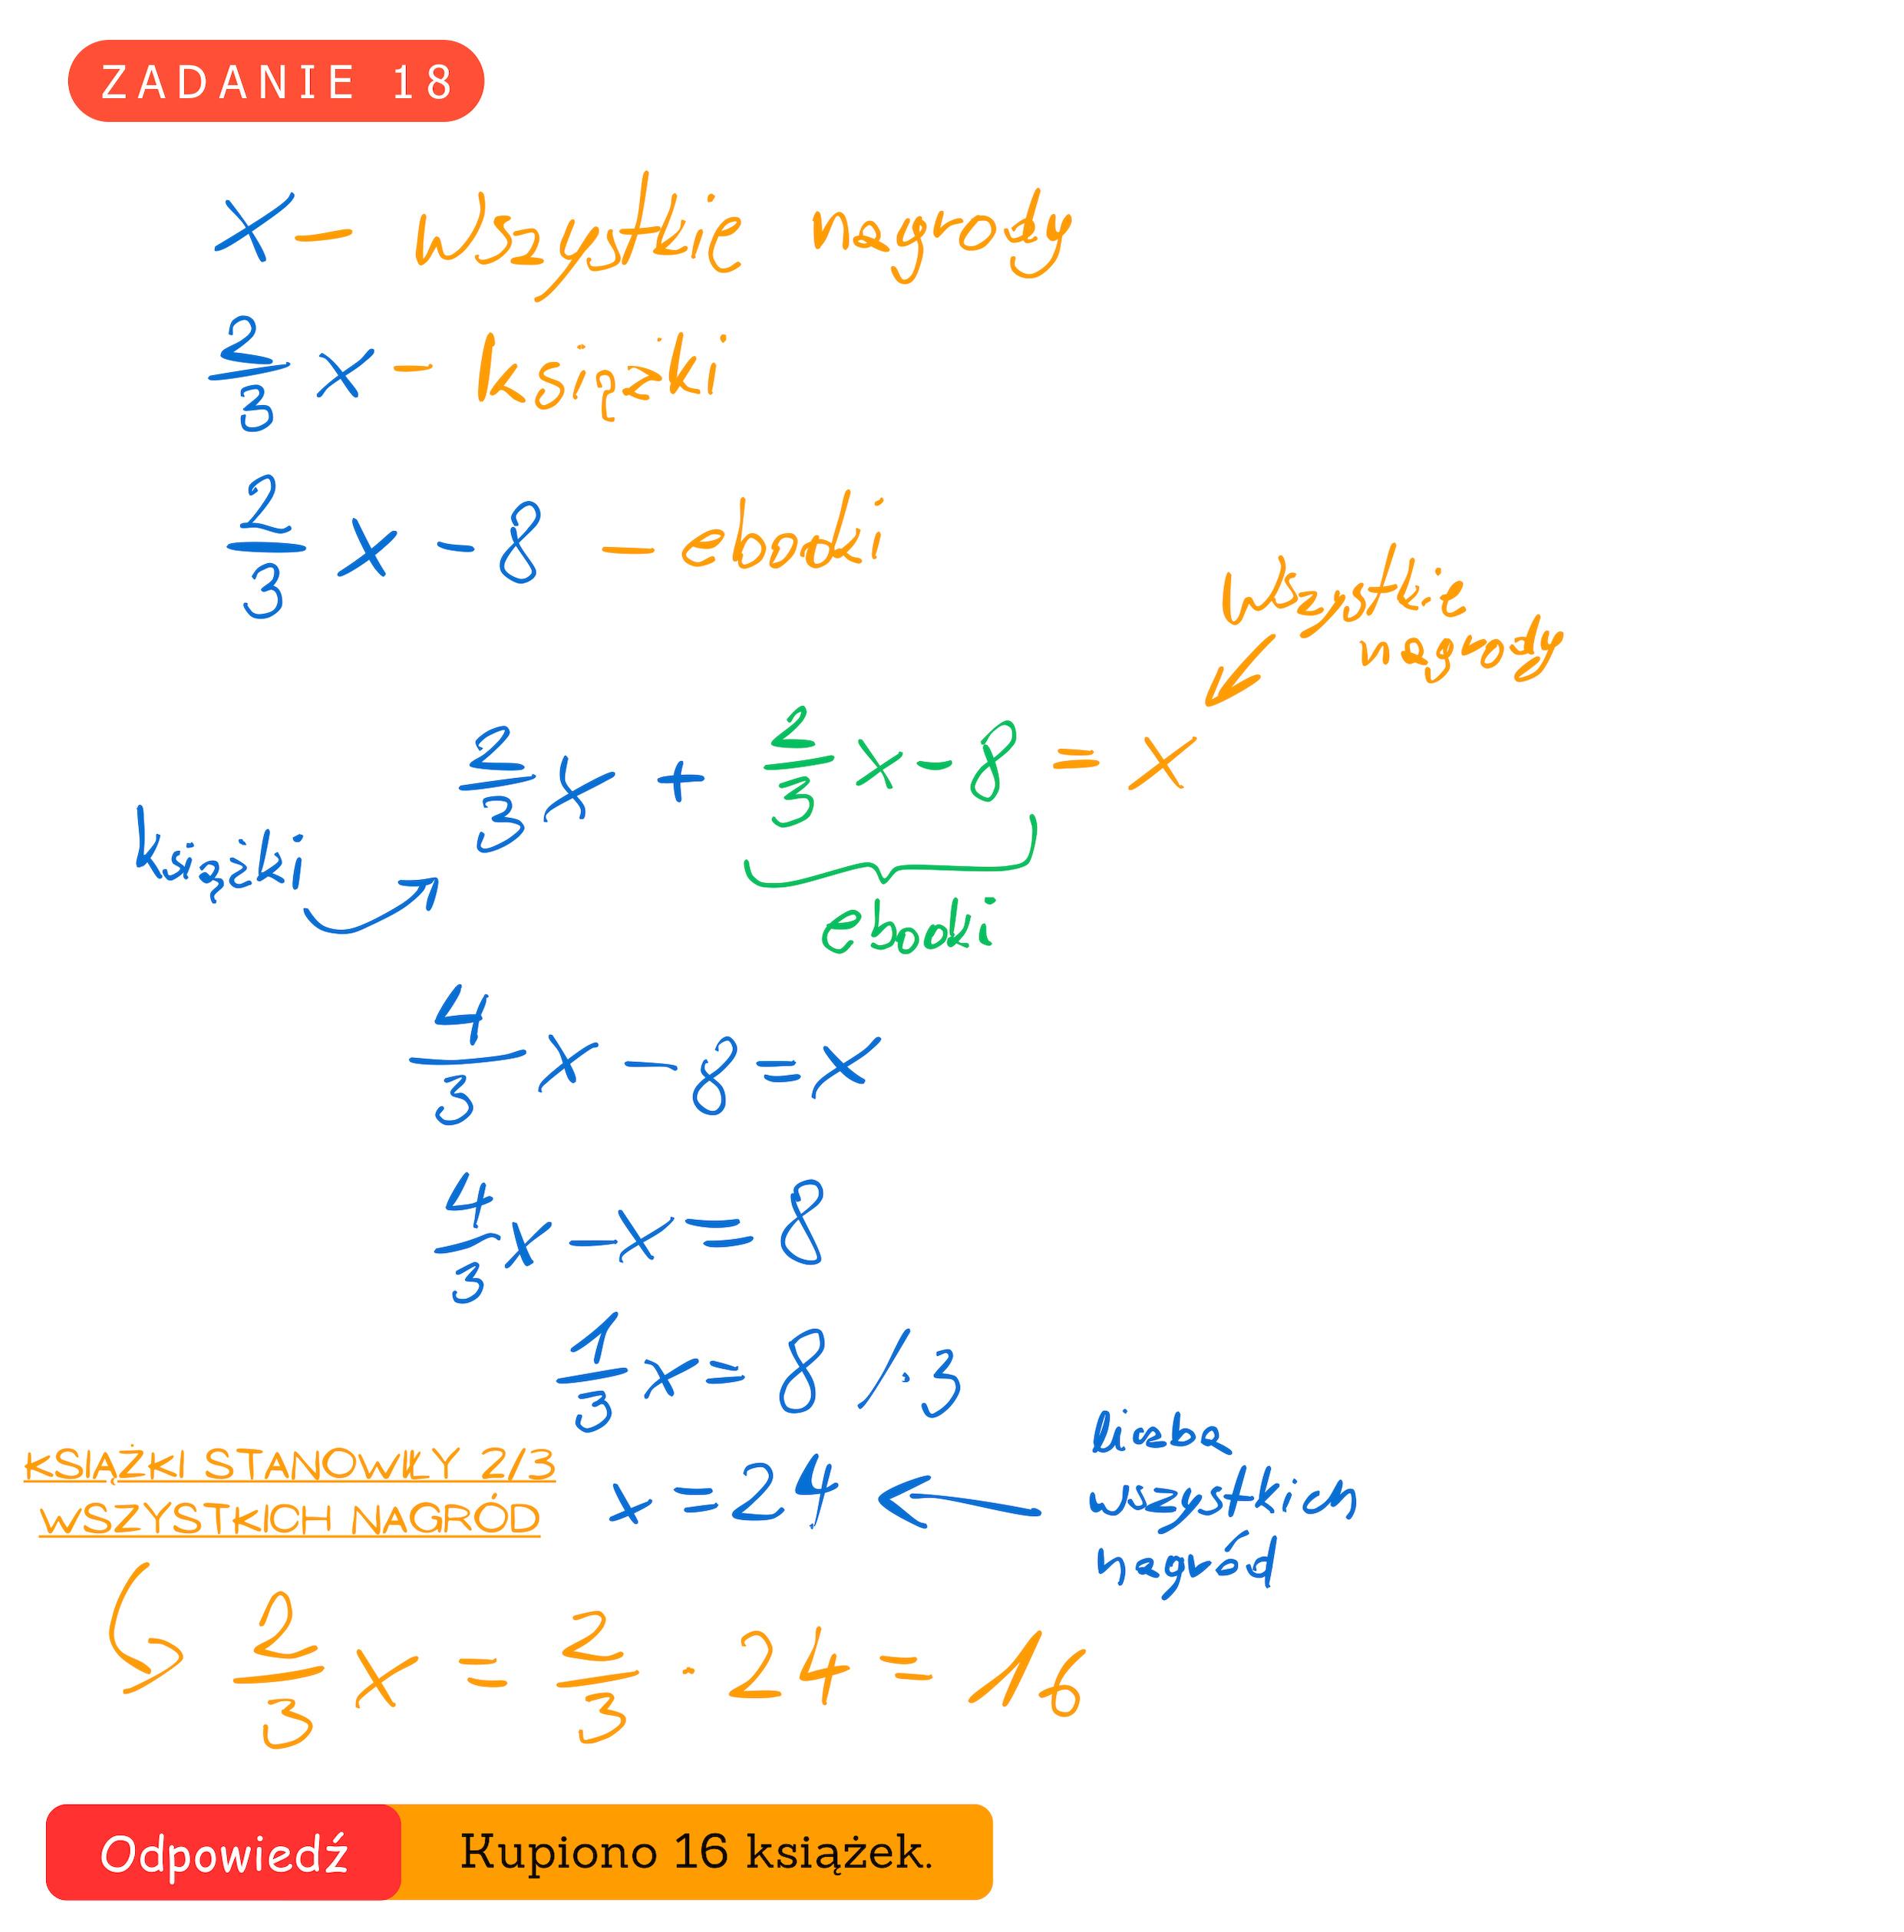 ZADANIE 18
x — wszystkie nagrody
2/3 x — książki
2/3 x - 8 — ebooki
wszystkie
nagrody
2/3 x + 2/3 x - 8 = x
książki
ebooki
4/3 x - 8 = x
4/3 x - x = 8
1/3 x = 8 / · 3
x = 24
liczba
wszystkich
nagród
KSIĄŻKI STANOWIŁY 2/3
WSZYSTKICH NAGRÓD
2/3 x = 2/3 · 24 = 16
Odpowiedź Kupiono 16 książek.